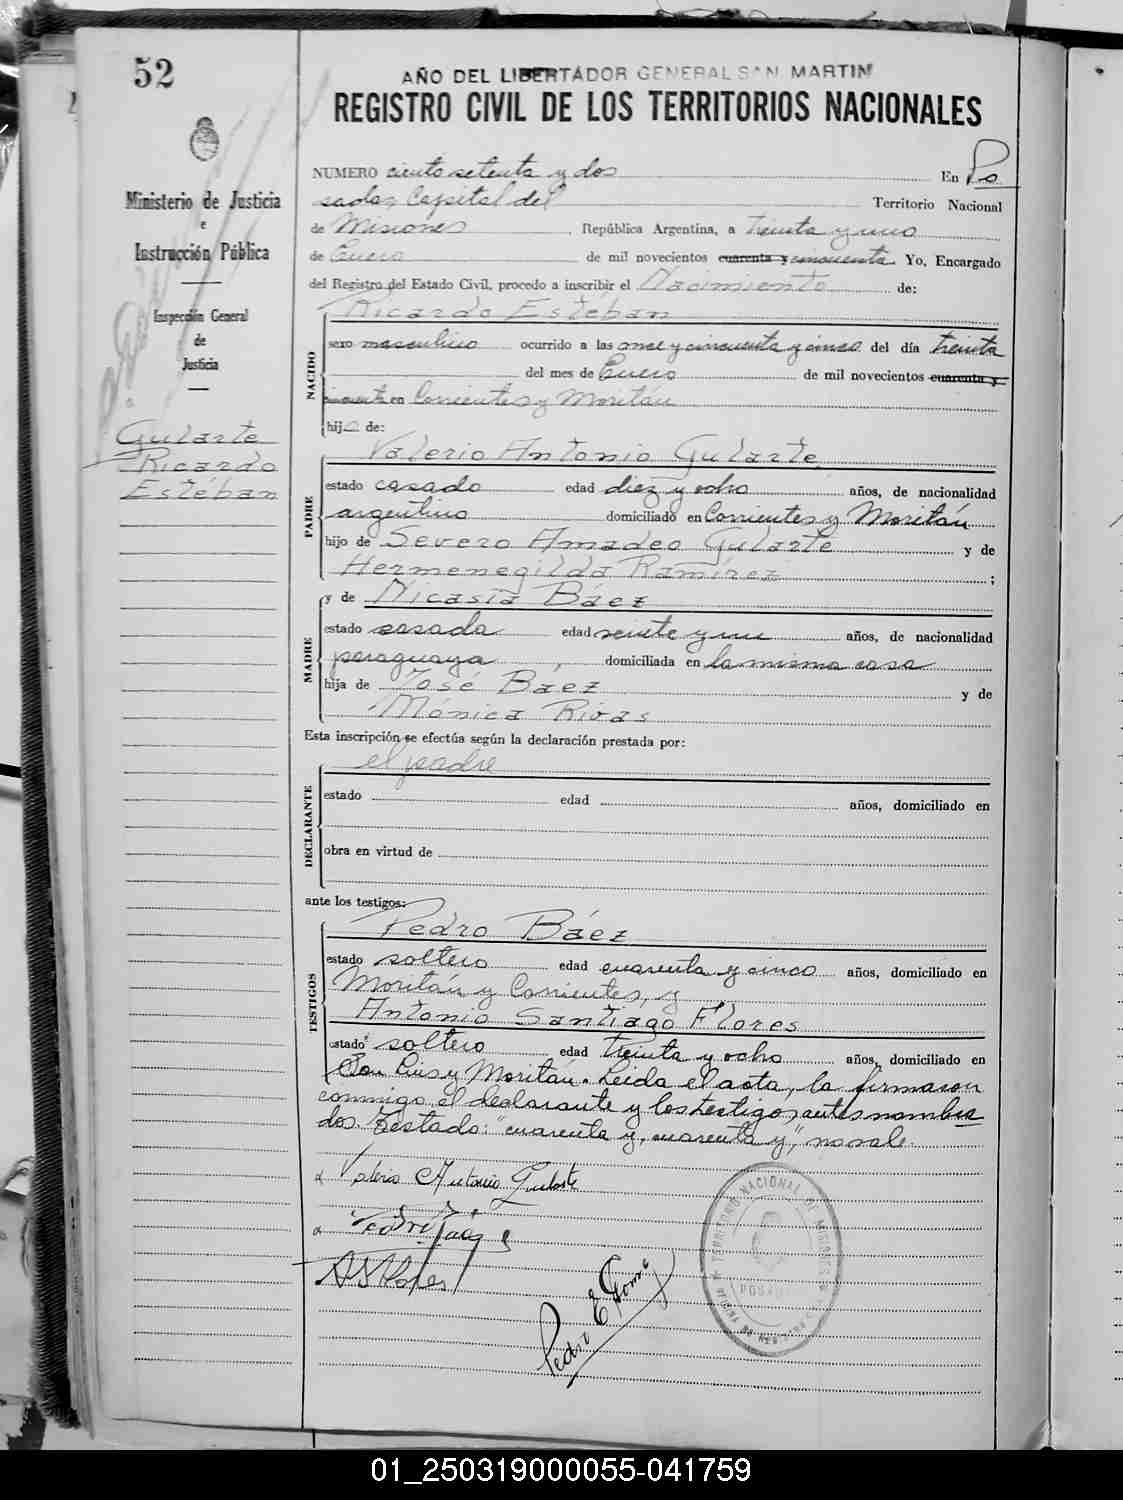 52
AÑO DEL LIBERTADOR GENERAL SAN MARTIN
REGISTRO CIVIL DE LOS TERRITORIOS NACIONALES
Ministerio de Justicia
e
Instrucción Pública
Inspección General
de
Justicia
Gularte
Ricardo
Estéban
NUMERO ciento setenta y dos En Po
sadas, Capital del Territorio Nacional
de Misiones, República Argentina, a treinta y uno
de Enero de mil novecientos cuarenta y cincuenta. Yo, Encargado
del Registro del Estado Civil, procedo a inscribir el Nacimiento de:
Ricardo Estéban
NACIDO
sexo masculino ocurrido a las once y cincuenta y cinco del día treinta
del mes de Enero de mil novecientos cuarenta y
cincuenta en Corrientes y Moritán
hijo de:
Valerio Antonio Gularte
PADRE
estado casado edad diez y ocho años, de nacionalidad
argentino domiciliado en Corrientes y Moritán
hijo de Severo Amadeo Gularte y de
Hermenegilda Ramírez ;
y de Nicasia Báez
MADRE
estado casada edad veinte y un años, de nacionalidad
paraguaya, domiciliada en la misma casa
hija de José Baez y de
Mónica Rivas
Esta inscripción se efectúa según la declaración prestada por:
el padre
DECLARANTE
estado edad años, domiciliado en
obra en virtud de
ante los testigos:
Pedro Báez
TESTIGOS
estado soltero edad cuarenta y cinco años, domiciliado en
Moritán y Corrientes, y
Antonio Santiago Flores
estado soltero edad treinta y ocho años, domiciliado en
San Luis y Moritán. Leida el acta, la firmaron
conmigo, el declarante y los testigos, antes nombra
dos. Testado: "cuarenta y, cuarenta y", no vale.
Valerio Antonio Gularte
Pedro Báez
A S Flores
Pedro E Gomez
TERRITORIO NACIONAL DE MISIONES
POSADAS
01_250319000055-041759